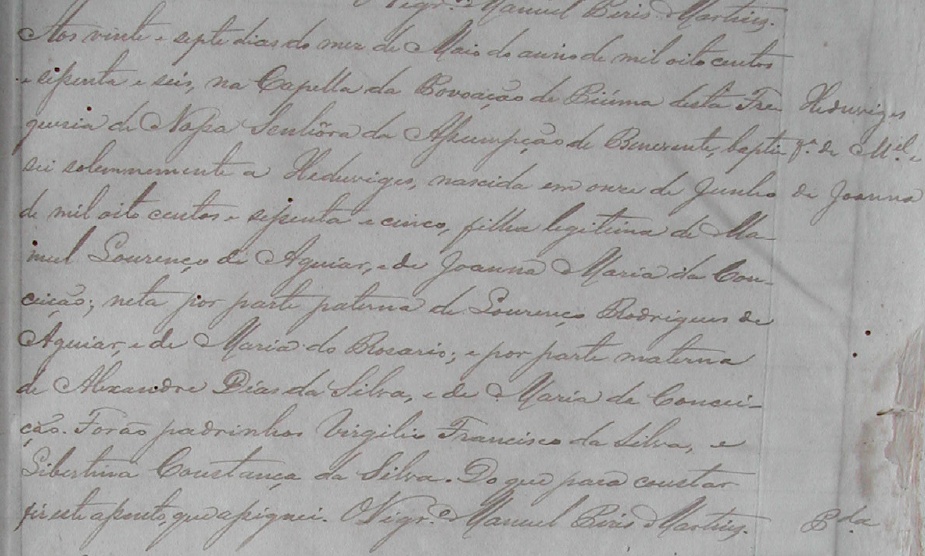 O Vigr.º Manuel Piris Martins.
Aos vinte e septe dias do mez de Maio do anno de mil oito centos
e sessenta e seis, na Capella da Povoação de Piúma desta Fre
guesia de Nossa Senhora da Assumpção de Benevente, bapti
sei solemnemente a Heduviges, nascida em onze de Junho
de mil oito centos e sessenta e cinco, filha legitima de Ma-
nuel Lourenço de Aguiar, e de Joanna Maria da Con-
ceição; neta por parte paterna de Lourenço Rodrigues de
Aguiar, e de Maria do Rosario; e por parte materna
de Alexandre Dias da Silva, e de Maria da Concei-
ção. Forão padrinhos Virgilio Francisco da Silva, e
Libertina Constança da Silva. Do que para constar
fiz este assento, que assignei. O Vigr.º Manuel Piris Martins.
Heduviges
f.ª de M.el e
de Joanna